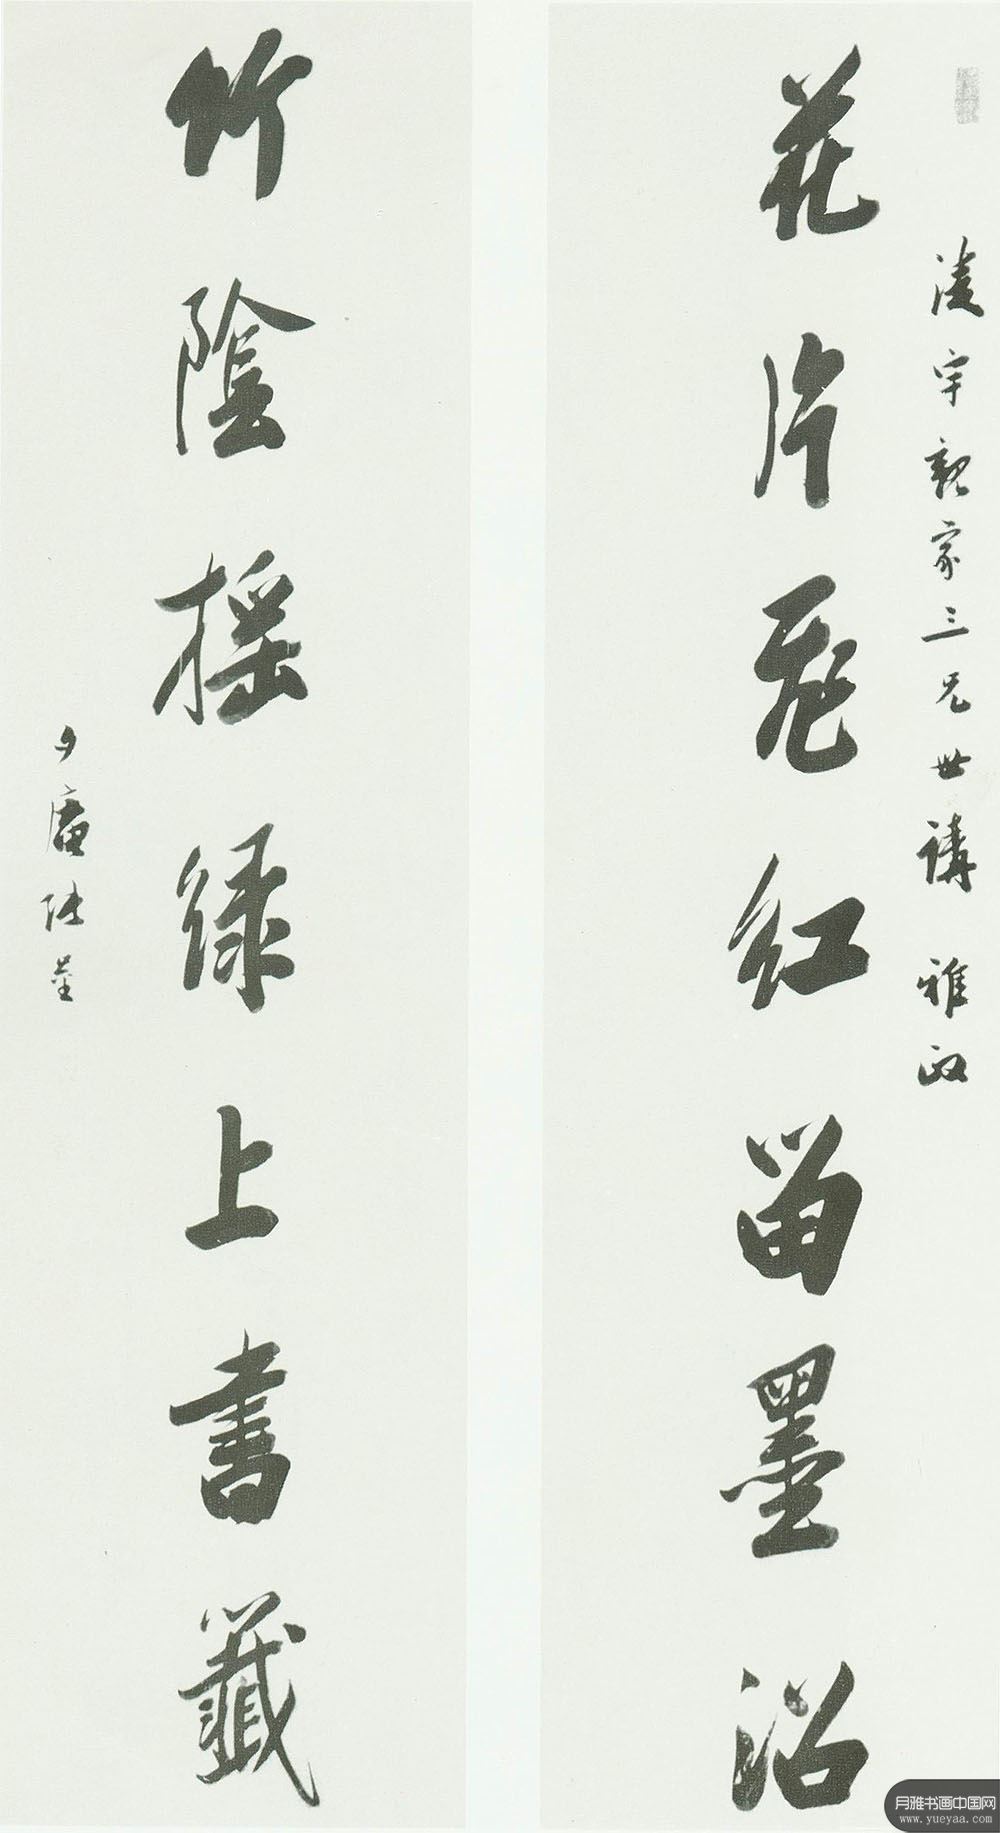 淩宇親家三兄世講 雅政
花片飛紅留墨沼
竹陰搖綠上書籤
少庵陸
月雅书画中国网
www.yueyaa.com